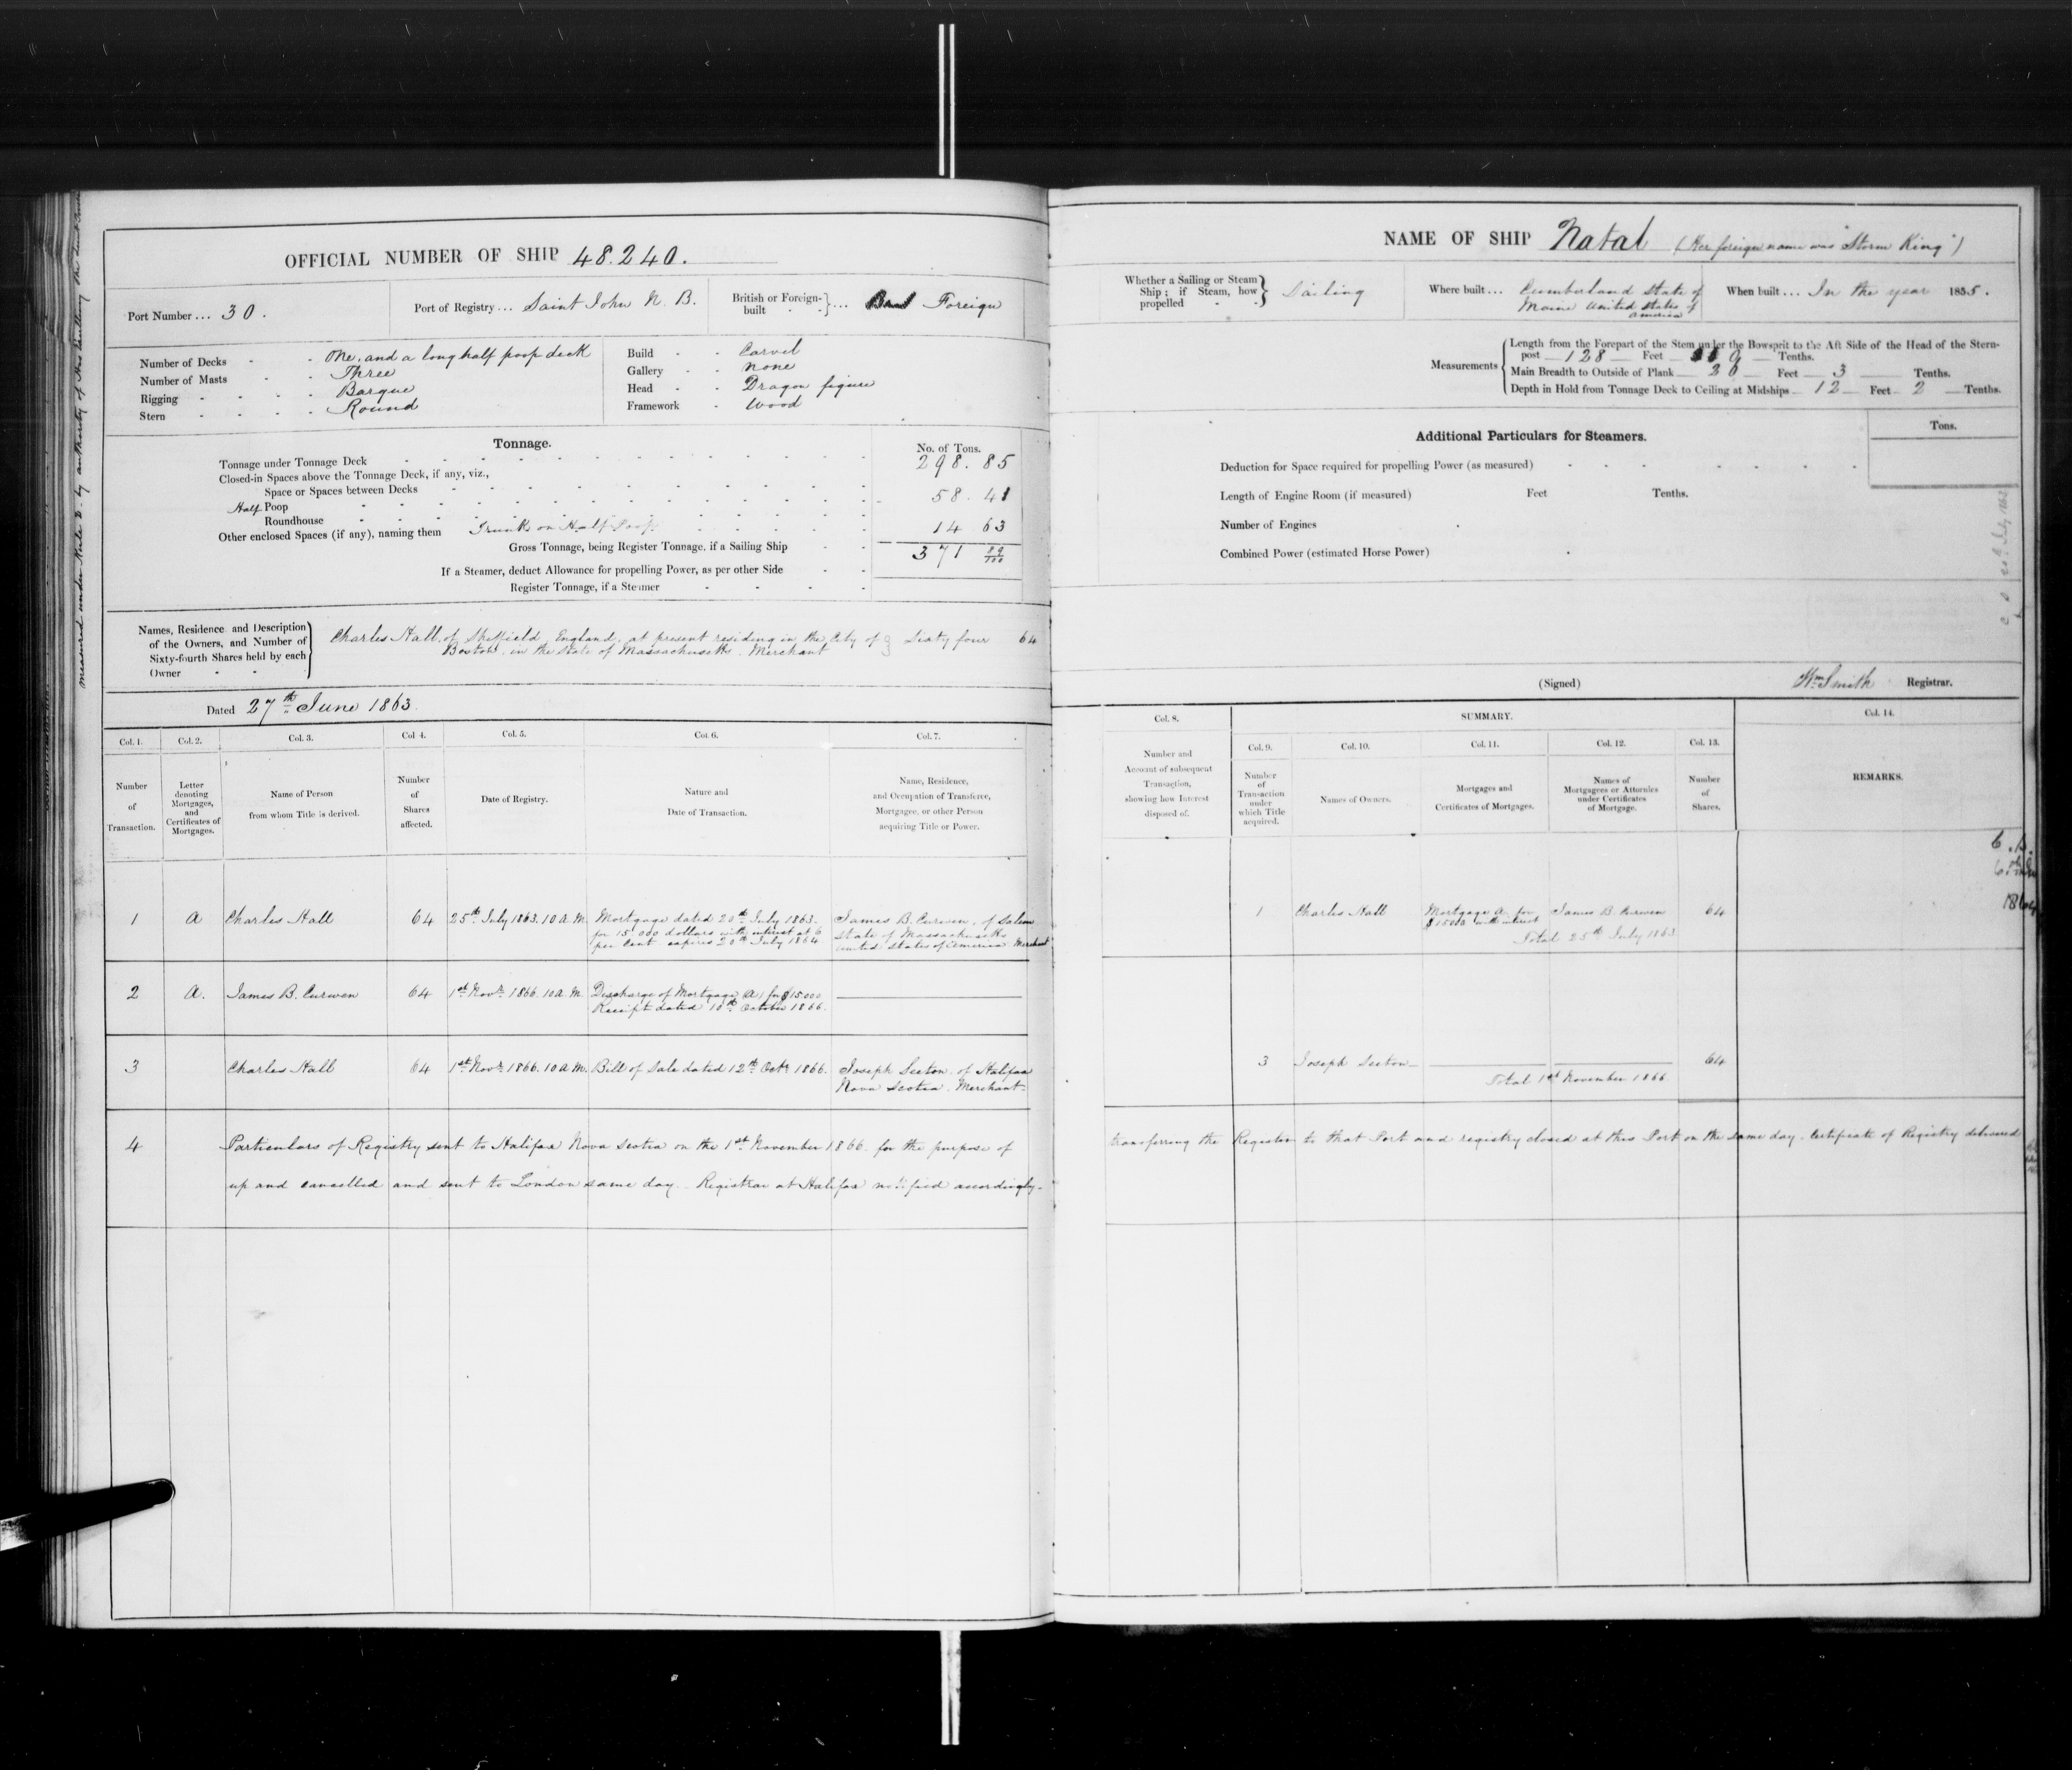 OFFICIAL NUMBER OF SHIP 48.240.
Port Number ... 30.
Port of Registry ... Saint John N. B.
British or Foreign-built ... Foreign
Number of Decks - - One, and a long half poop deck
Number of Masts - - Three
Rigging - - - - Barque
Stern - - - - Round
Build - - Carvel
Gallery - - none
Head - - Dragon figure
Framework - Wood
Tonnage.
No. of Tons.
Tonnage under Tonnage Deck 298.85
Closed-in Spaces above the Tonnage Deck, if any, viz.,
Space or Spaces between Decks
Half Poop 58.41
Roundhouse
Other enclosed Spaces (if any), naming them Trunk on Half Poop 14 63
Gross Tonnage, being Register Tonnage, if a Sailing Ship 371 89/100
If a Steamer, deduct Allowance for propelling Power, as per other Side
Register Tonnage, if a Steamer
Names, Residence and Description of the Owners, and Number of Sixty-fourth Shares held by each Owner
Charles Hall, of Sheffield, England, at present residing in the City of } Sixty four 64
Boston, in the State of Massachusetts. Merchant
Dated 27th June 1863.
NAME OF SHIP Natal (Her foreign name was "Storm King")
Whether a Sailing or Steam Ship; if Steam, how propelled } Sailing
Where built ... Cumberland State of
Maine United States of
America
When built ... In the year 1855.
Measurements
Length from the Forepart of the Stem under the Bowsprit to the Aft Side of the Head of the Stern-
post 128 Feet 9 Tenths.
Main Breadth to Outside of Plank Feet 3 Tenths.
Depth in Hold from Tonnage Deck to Ceiling at Midships 12 Feet 2 Tenths.
Additional Particulars for Steamers.
Tons.
Deduction for Space required for propelling Power (as measured)
Length of Engine Room (if measured) Feet Tenths.
Number of Engines
Combined Power (estimated Horse Power)
(Signed) Wm Smith Registrar.
Col. 1. Col. 2. Col. 3. Col 4. Col. 5. Col. 6. Col. 7.
Number of Transaction.
Letter denoting Mortgages, and Certificates of Mortgages.
Name of Person from whom Title is derived.
Number of Shares affected.
Date of Registry.
Nature and Date of Transaction.
Name, Residence, and Occupation of Transferee, Mortgagee, or other Person acquiring Title or Power.
Col. 8. SUMMARY. Col. 14.
Col. 9. Col. 10. Col. 11. Col. 12. Col. 13.
Number and Account of subsequent Transaction, showing how Interest disposed of.
Number of Transaction under which Title acquired.
Names of Owners.
Mortgages and Certificates of Mortgages.
Names of Mortgagees or Attornies under Certificates of Mortgage.
Number of Shares.
REMARKS.
1 A Charles Hall 64 25th July 1863. 10 A.M.
Mortgage dated 20th July 1863.
for 15,000 dollars with interest at 6
per Cent. expires 20th July 1864
James B. Curwen, of Salem
State of Massachusetts
United States of America Merchant
1 Charles Hall
Mortgage A for
$15000 with interest
James B. Curwen 64
Total 25th July 1863
2 A. James B. Curwen 64 1st Novr 1866. 10 A.M.
Discharge of Mortgage (A) for $15.000
Receipt dated 10th October 1866.
3 Charles Hall 64 1st Novr 1866. 10 A.M. Bill of Sale dated 12th Octr 1866.
Joseph Seeton, of Halifax
Nova Scotia. Merchant
3 Joseph Seeton 64
Total 1st November 1866
4 Particulars of Registry sent to Halifax Nova Scotia on the 1st November 1866. for the purpose of transferring the Register to that Port and registry closed at this Port on the same day. Certificate of Registry delivered
up and cancelled and sent to London same day. Registrar at Halifax notified accordingly.